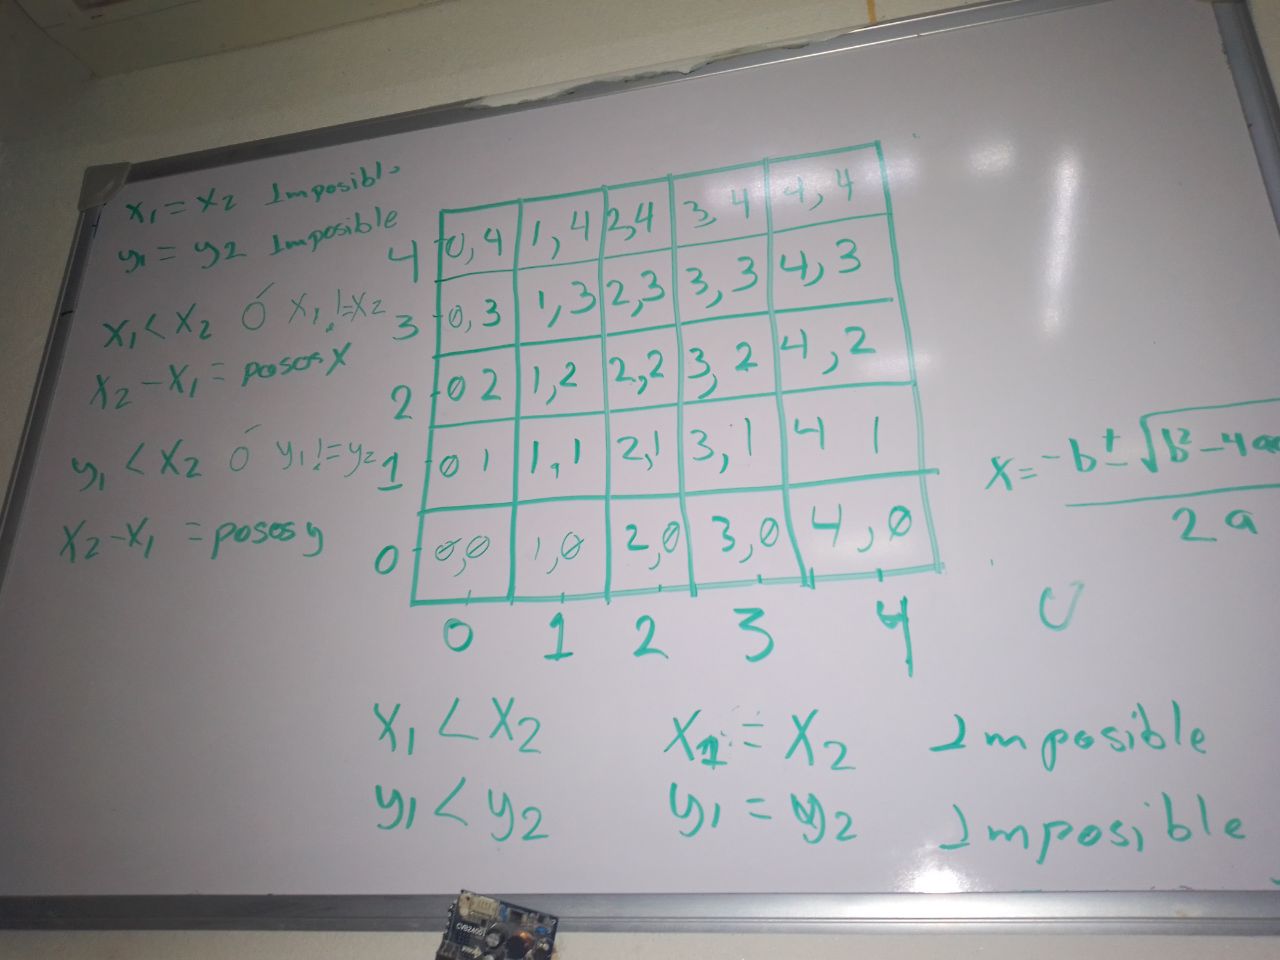 x₁ = x₂ Imposible
y₁ = y₂ Imposible
x₁ < x₂ ó x₁ != x₂
x₂ - x₁ = pasos x
y₁ < x₂ ó y₁ != y₂
x₂ - x₁ = pasos y
4 0,4 1,4 2,4 3,4 4,4
3 0,3 1,3 2,3 3,3 4,3
2 0 2 1,2 2,2 3,2 4,2
1 0 1 1,1 2,1 3,1 4 1
0 0,0 1,0 2,0 3,0 4,0
0 1 2 3 4
x = -b ± √b² - 4a
2a
x₁ < x₂ x₁ = x₂ Imposible
y₁ < y₂ y₁ = y₂ Imposible